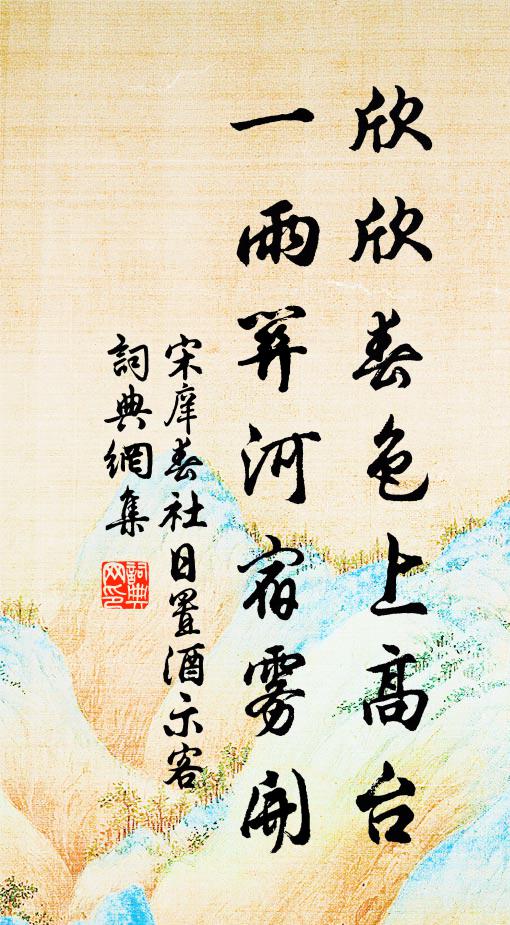 欣欣春色上高台
一雨关河宿雾开
宋庠春社日置酒示客
詞典網集
詞典
网印